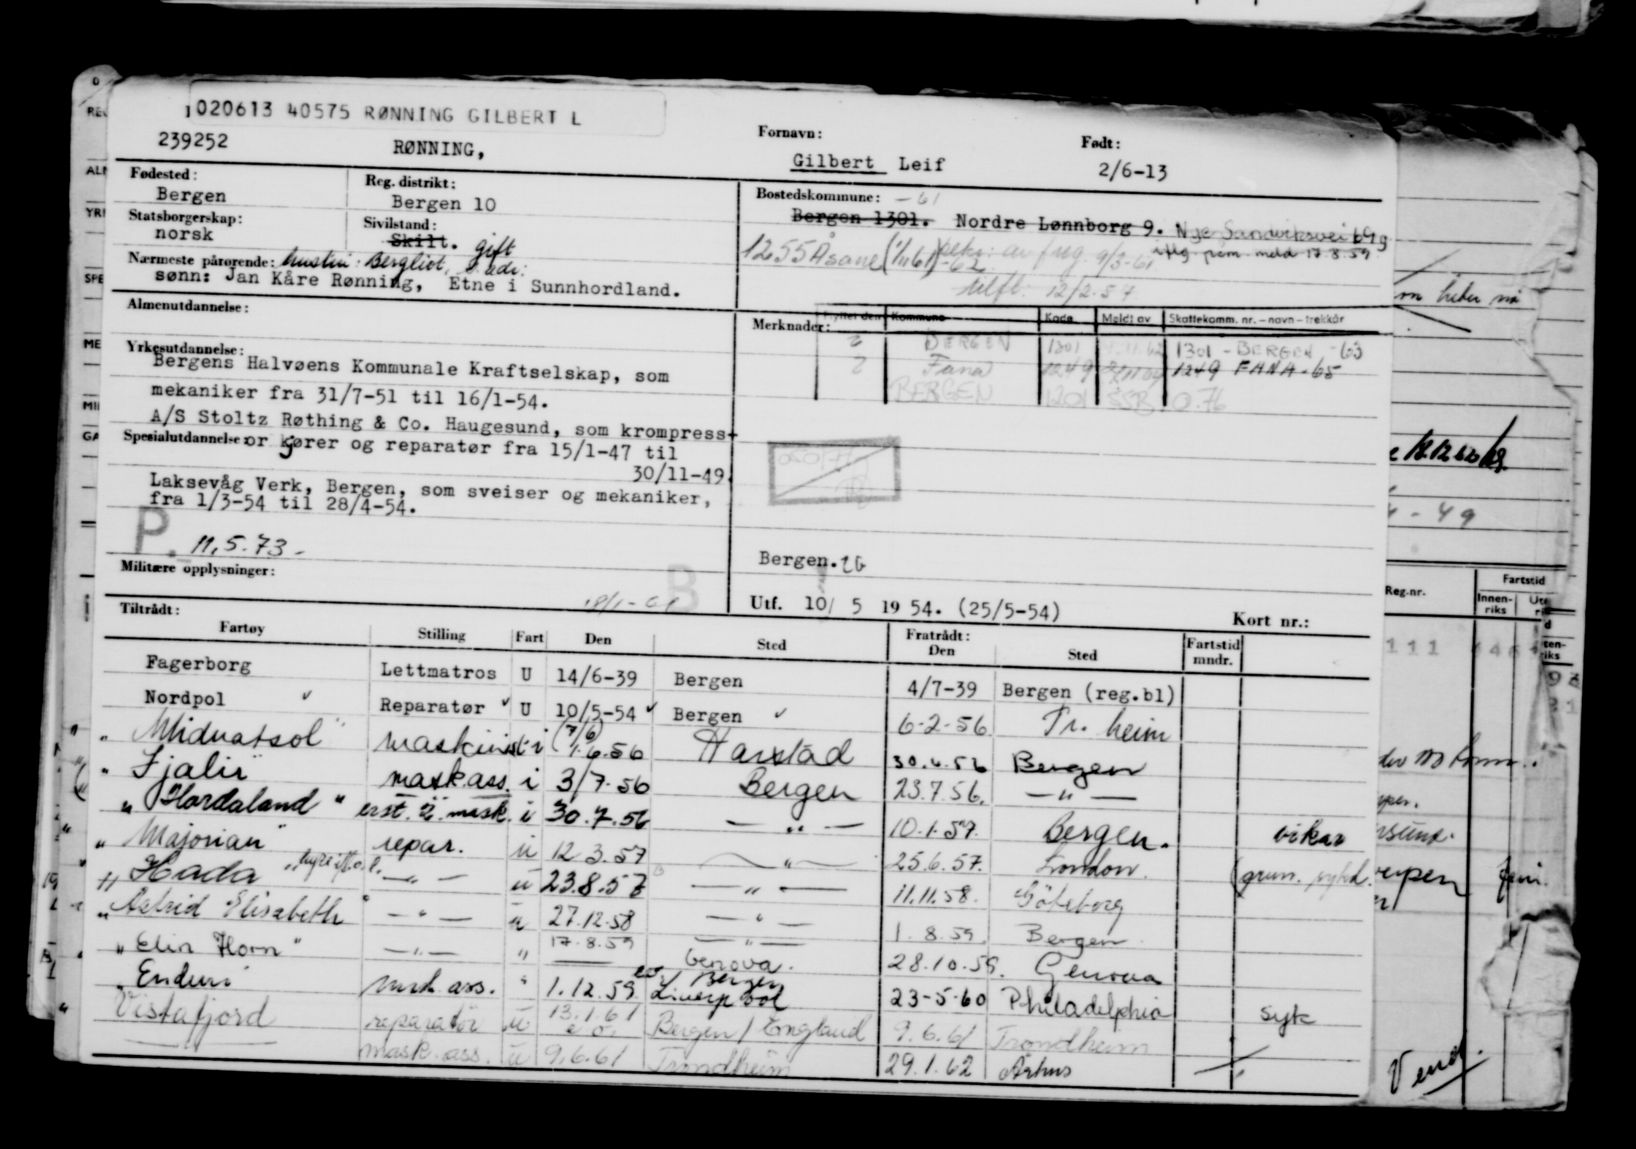 1020613 40575 RØNNING GILBERT L
239252 RØNNING, Fornavn: Gilbert Leif Født: 2/6-13
Fødested: Bergen Reg. distrikt: Bergen 10 Bostedskommune: -61
Bergen 1301. Nordre Lønnborg 9. Nye Sandviksvei 69g
Statsborgerskap: norsk Sivilstand: Skilt. gift
iflg. prem. meld 17.8.59
1255 Åsane
Nærmeste pårørende: hustru: Bergliot, s. adr.
sønn: Jan Kåre Rønning, Etne i Sunnhordland.
12/2-57
Almenutdannelse:
Merknader: Flyttet den Kommune Kode Meldt av Skattekomm. nr. – navn – trekkår
BERGEN 1301 1301 - BERGEN - 63
Fana 1249 1249 FANA - 65
BERGEN 1201 SSB
Yrkesutdannelse:
Bergens Halvøens Kommunale Kraftselskap, som
mekaniker fra 31/7-51 til 16/1-54.
A/S Stoltz Røthing & Co. Haugesund, som krompress-
Spesialutdannelse: or kjører og reparatør fra 15/1-47 til
30/11-49.
Laksevåg Verk, Bergen, som sveiser og mekaniker,
fra 1/3-54 til 28/4-54.
P. 11.5.73.-
Militære opplysninger:
B
Bergen.
Utf. 10/ 5 19 54. (25/5-54) Kort nr.:
Tiltrådt: Fratrådt:
Fartøy Stilling Fart Den Sted Den Sted Fartstid mndr.
Fagerborg Lettmatros U 14/6-39 Bergen 4/7-39 Bergen (reg.bl)
Nordpol Reparatør U 10/5-54 Bergen 6-2-56 Tr. heim
"Midnatsol" maskinist i (7/6) 1.6.56 Harstad 30.6.56 Bergen
"Fjalir" mask.ass. i 3/7-56 Bergen 23.7.56. — " —
"Hordaland" erst. 2. mask. i 30.7.56 — " — 10.1.57. Bergen. vikar
"Majorian" repar. u 12.3.57 — " — 25.6.57. London.
"Hada" — " — u 23.8.57 — " — 11.11.58. Göteborg
"Astrid Elisabeth — " — u 27.12.58 — " — 1.8.59. Bergen
"Elin Horn" — " — " 17.8.59 — " — Genova. 28.10.59. Genova
"Enduri mask. ass. " 1.12.59 Bergen Liverpool 23-5-60 Philadelphia syk
Vistafjord reparatør u 13.1.61 Bergen / England 9.6.61 Trondheim
mask. ass. u 9.6.61 Trondheim 29.1.62 Århus
4 - 49
Reg.nr. Fartstid
Innen-riks
111
Vend.